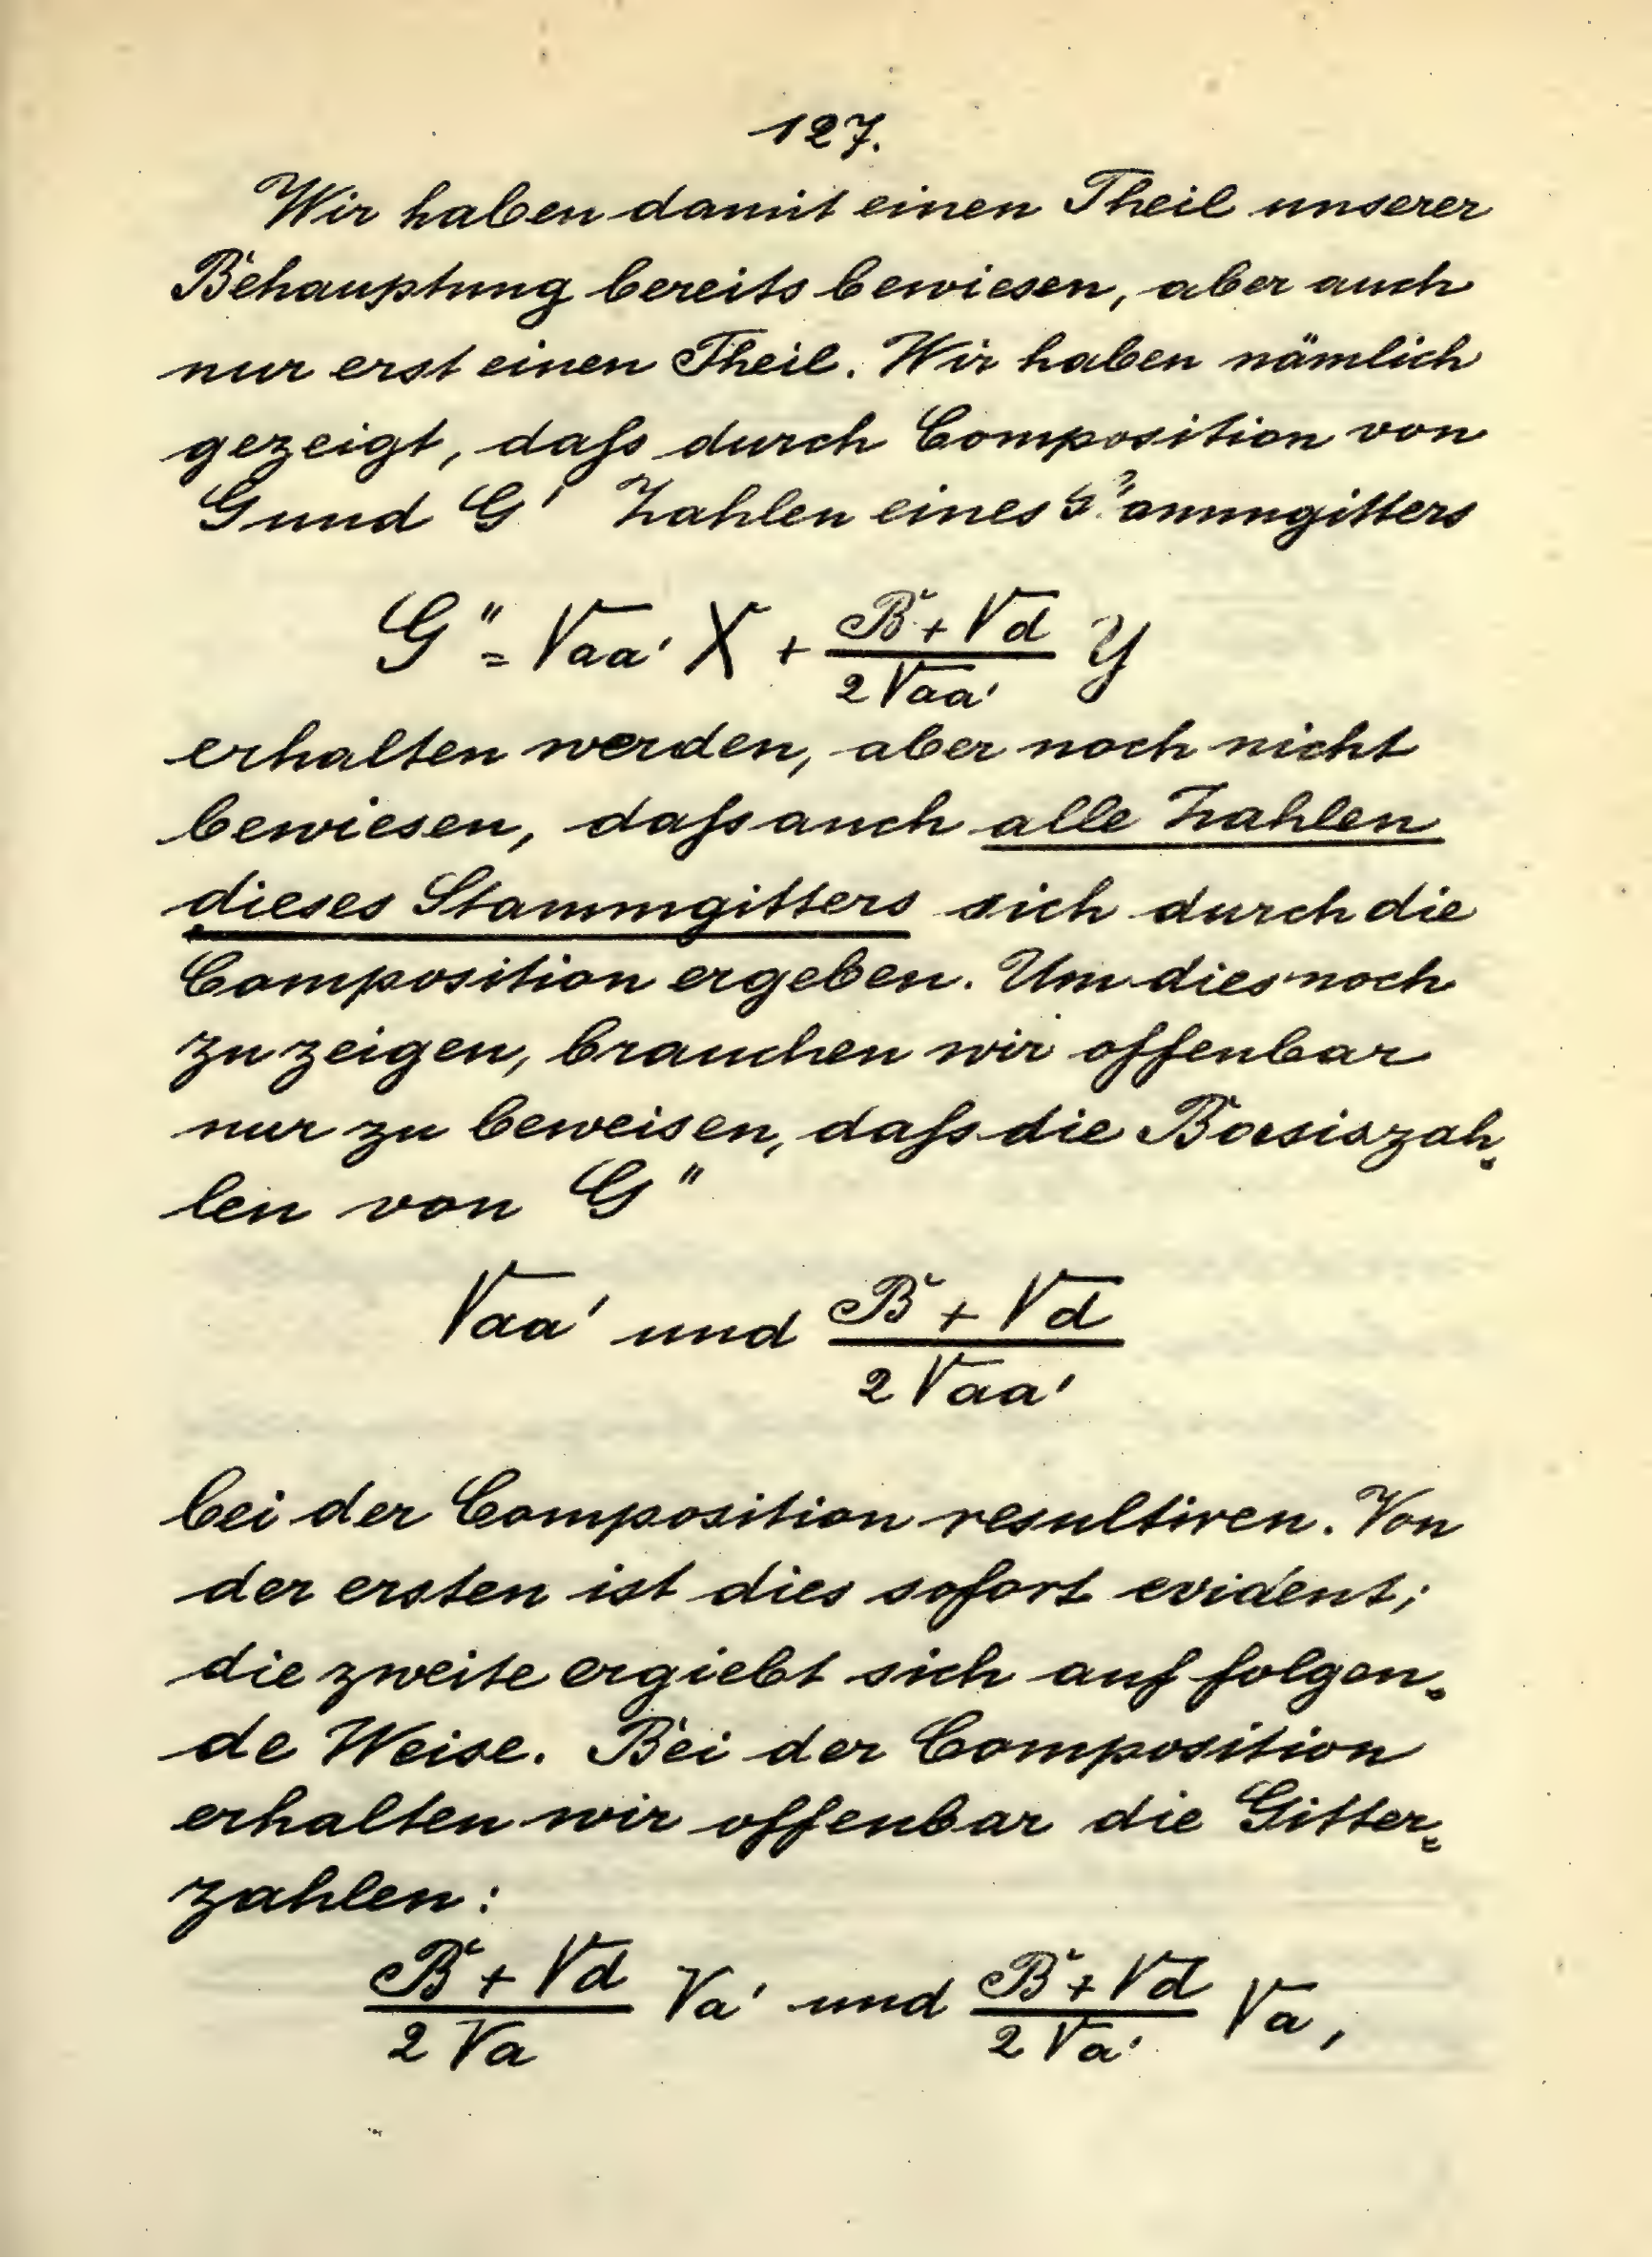 127.
Wir haben damit einen Theil unserer
Behauptung bereits bewiesen, aber auch
nur erst einen Theil. Wir haben nämlich
gezeigt, daſs durch Composition von
G und G' Zahlen eines Stammgitters
G" = √aa' X + (B + √d)/(2√aa') Y
erhalten werden, aber noch nicht
bewiesen, daſs auch alle Zahlen
dieses Stammgitters sich durch die
Composition ergeben. Um dies noch
zu zeigen, brauchen wir offenbar
nur zu beweisen, daſs die Basiszah=
len von G"
√aa' und (B + √d)/(2√aa')
bei der Composition resultiren. Von
der ersten ist dies sofort evident;
die zweite ergiebt sich auf folgen=
de Weise. Bei der Composition
erhalten wir offenbar die Gitter=
zahlen:
(B + √d)/(2√a) √a' und (B + √d)/(2√a') √a,